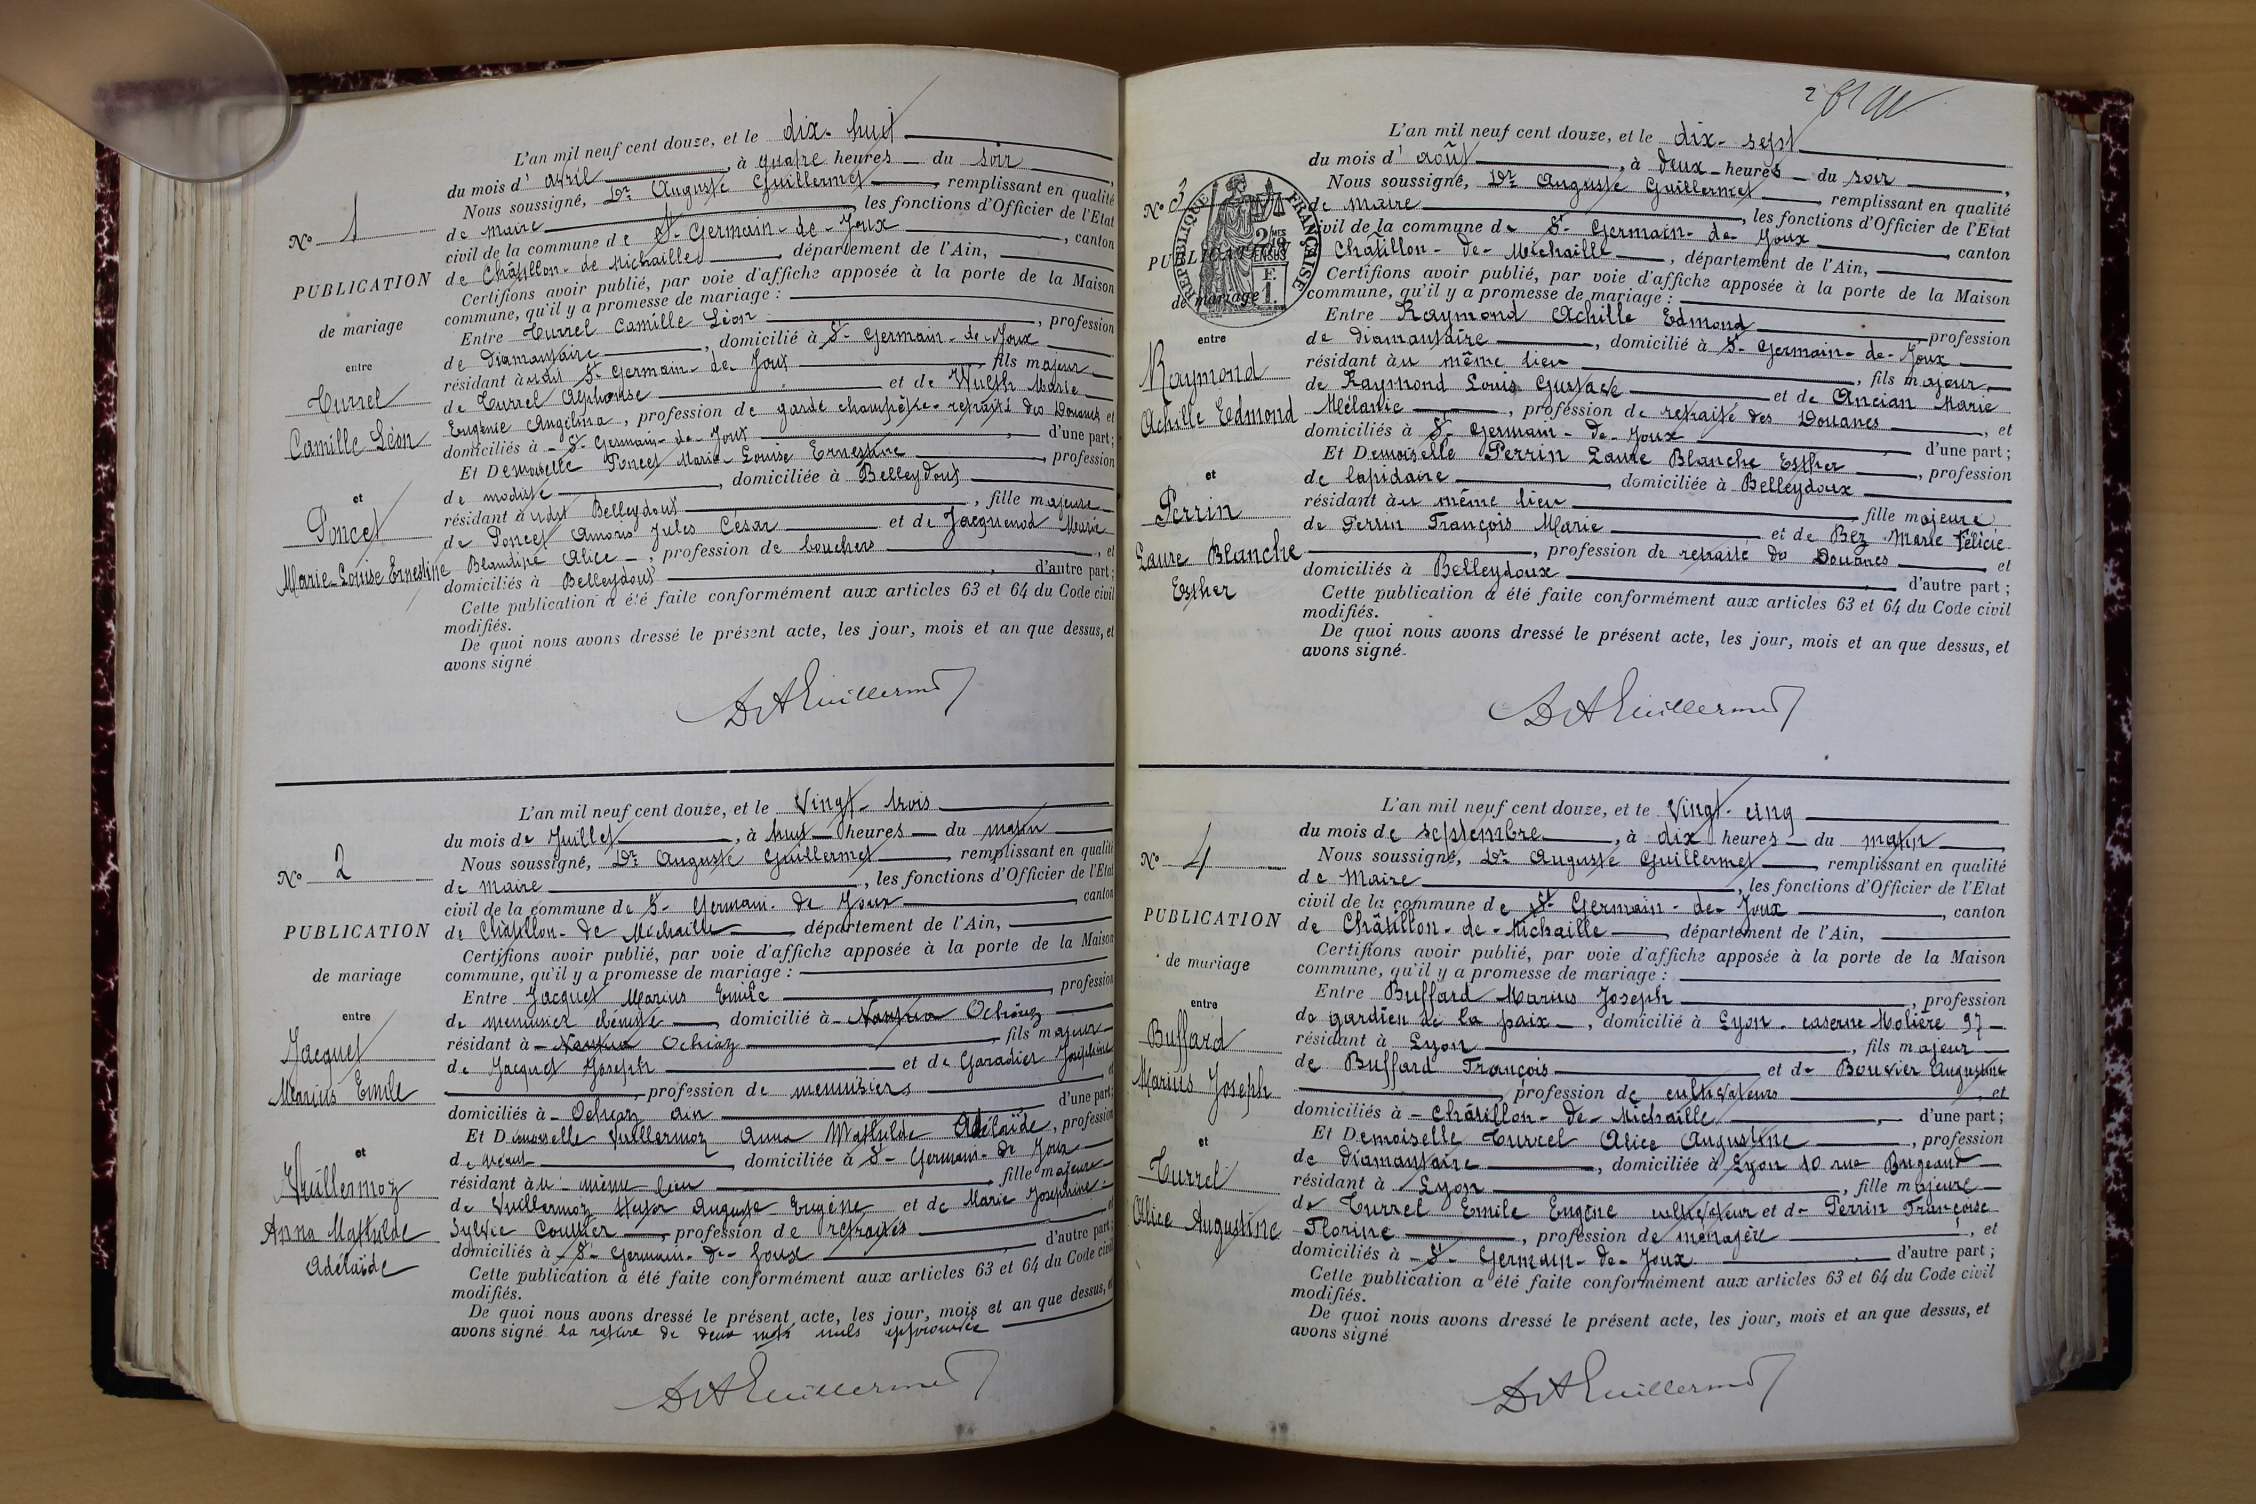 L'an mil neuf cent douze, et le dix-huit
du mois d' avril, à quatre heures du soir,
Nous soussigné, Dr Auguste Guillermet, remplissant en qualité
de maire, les fonctions d'Officier de l'Etat
civil de la commune de St Germain-de-Joux, canton
de Châtillon-de-Michaille, département de l'Ain,
Certifions avoir publié, par voie d'affiche apposée à la porte de la Maison
commune, qu'il y a promesse de mariage :
Entre Turrel Camille Léon, profession
de Diamantaire, domicilié à St Germain-de-Joux
résidant à St Germain-de-Joux, fils majeur
de Turrel Alphonse et de Marie
Eugénie Angelina, profession de garde champêtre-retraité des Douanes, et
domiciliés à St Germain-de-Joux, d'une part;
Et Demoiselle Poncet Marie-Louise Ernestine, profession
de modiste, domiciliée à Belleydoux
résidant à Belleydoux, fille majeure
de Poncet Jules César et de Jacquenod Marie
Blandine Alice, profession de bouchers, et
domiciliés à Belleydoux, d'autre part;
Cette publication a été faite conformément aux articles 63 et 64 du Code civil
modifiés.
De quoi nous avons dressé le présent acte, les jour, mois et an que dessus, et
avons signé
Dr A Guillermet
No 1
PUBLICATION
de mariage
entre
Turrel
Camille Léon
et
Poncet
Marie-Louise Ernestine
L'an mil neuf cent douze, et le Vingt-trois
du mois de Juillet, à huit heures du matin
Nous soussigné, Dr Auguste Guillermet, remplissant en qualité
de maire, les fonctions d'Officier de l'Etat
civil de la commune de St Germain-de Joux, canton
de Châtillon-de Michaille, département de l'Ain,
Certifions avoir publié, par voie d'affiche apposée à la porte de la Maison
commune, qu'il y a promesse de mariage :
Entre Jacquet Marius Emile, profession
de menuisier ébéniste, domicilié à Nantua Ochiaz
résidant à Nantua Ochiaz, fils majeur
de Jacquet Joseph et de Garadier Joséphine
profession de menuisiers
domiciliés à Ochiaz ain d'une part;
Et Demoiselle Vuillermoz Anna Mathilde Adélaïde, profession
de néant, domiciliée à St Germain-de Joux
résidant au même lieu, fille majeure
de Vuillermoz Auguste Eugène et de Marie Joséphine
Sylvie, profession de retraités
domiciliés à St Germain-de-Joux d'autre part;
Cette publication a été faite conformément aux articles 63 et 64 du Code civil
modifiés.
De quoi nous avons dressé le présent acte, les jour, mois et an que dessus, et
avons signé la rature de deux mots nuls approuvée
Dr A Guillermet
No 2
PUBLICATION
de mariage
entre
Jacquet
Marius Emile
et
Vuillermoz
Anna Mathilde
Adélaïde
2
L'an mil neuf cent douze, et le dix-sept
du mois d' août, à deux heures du soir,
Nous soussigné, Dr Auguste Guillermet, remplissant en qualité
de maire, les fonctions d'Officier de l'Etat
civil de la commune de St Germain-de-Joux, canton
Châtillon-de-Michaille, département de l'Ain,
Certifions avoir publié, par voie d'affiche apposée à la porte de la Maison
commune, qu'il y a promesse de mariage :
Entre Raymond Achille Edmond, profession
de diamantaire, domicilié à St Germain-de-Joux
résidant au même lieu, fils majeur
de Raymond Louis Gustave et de Ancian Marie
Mélanie, profession de retraité des Douanes, et
domiciliés à St Germain-de-Joux d'une part;
Et Demoiselle Perrin Laure Blanche Esther, profession
de lapidaire, domiciliée à Belleydoux
résidant au même lieu fille majeure
de Perrin François Marie et de Bez Marie Félicie
, profession de retraité des Douanes et
domiciliés à Belleydoux d'autre part;
Cette publication a été faite conformément aux articles 63 et 64 du Code civil
modifiés.
De quoi nous avons dressé le présent acte, les jour, mois et an que dessus, et
avons signé
Dr A Guillermet
No 3
REPUBLIQUE FRANÇAISE
PUBLICATION
de mariage
entre
Raymond
Achille Edmond
et
Perrin
Laure Blanche
Esther
L'an mil neuf cent douze, et le Vingt-cinq
du mois de septembre, à dix heures du matin,
Nous soussigné, Dr Auguste Guillermet, remplissant en qualité
de Maire, les fonctions d'Officier de l'Etat
civil de la commune de St Germain-de-Joux, canton
de Châtillon-de-Michaille, département de l'Ain,
Certifions avoir publié, par voie d'affiche apposée à la porte de la Maison
commune, qu'il y a promesse de mariage :
Entre Buffard Marius Joseph, profession
de gardien de la paix, domicilié à Lyon-caserne Molière 97
résidant à Lyon, fils majeur
de Buffard François et de Bouvier Augustine
, profession de cultivateurs, et
domiciliés à Châtillon-de-Michaille, d'une part;
Et Demoiselle Turrel Alice Augustine, profession
de Diamantaire, domiciliée à Lyon 10 rue Bugeaud
résidant à Lyon, fille majeure
de Turrel Emile Eugène cultivateur et de Perrin Françoise
Florine, profession de ménagère, et
domiciliés à St Germain-de-Joux d'autre part;
Cette publication a été faite conformément aux articles 63 et 64 du Code civil
modifiés.
De quoi nous avons dressé le présent acte, les jour, mois et an que dessus, et
avons signé
Dr A Guillermet
No 4
PUBLICATION
de mariage
entre
Buffard
Marius Joseph
et
Turrel
Alice Augustine